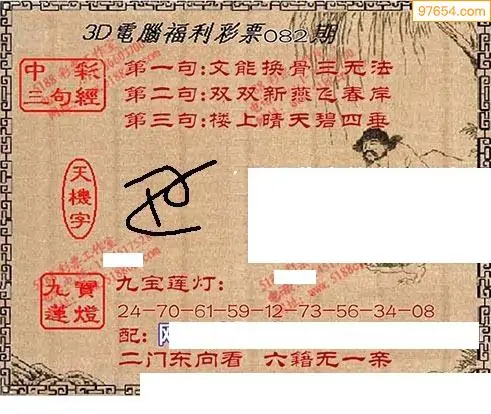 97654.com
3D電腦福利彩票082期
中彩三句經
第一句:文能换骨三无法
第二句:双双新燕飞春岸
第三句:楼上晴天碧四垂
天機字
九寶蓮燈
九宝莲灯:
24-70-61-59-12-73-56-34-08
配:
二门东向看 六籍无一亲